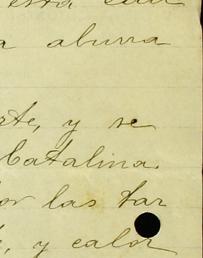 esta
a aburra
rte, y se
Catalina.
or las tar
, y calor